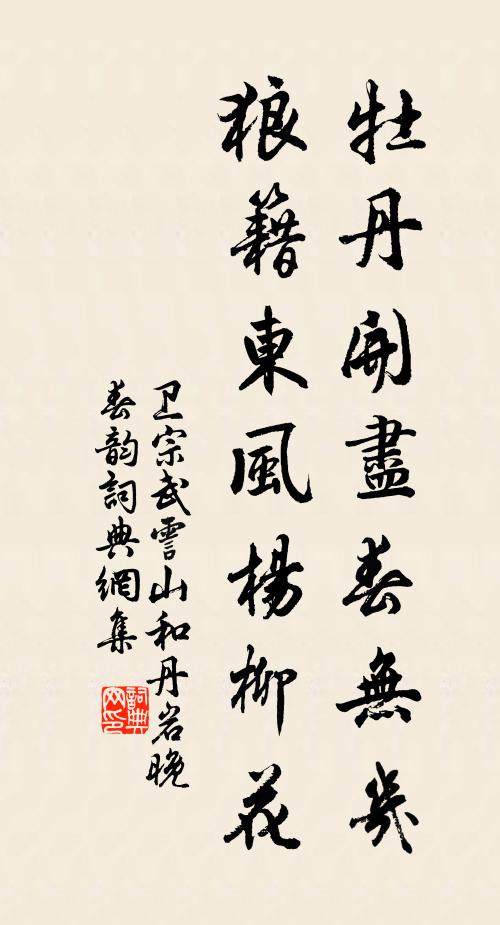 牡丹開盡春無幾
狼籍東風楊柳花
卫宗武雲山和丹岩晚
春韵詞典網集
詞典网印